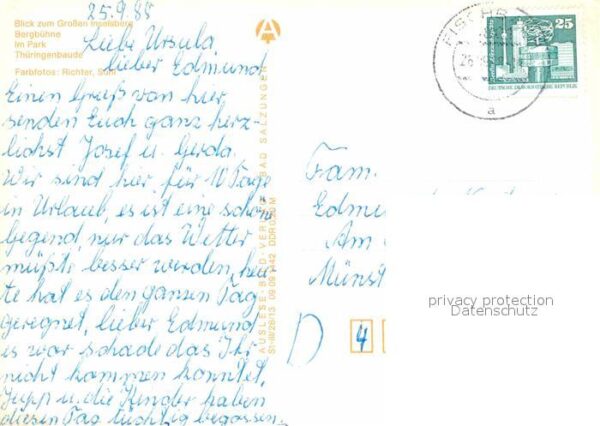 25.9.88
Blick zum Großen Inselsberg
Bergbühne
Im Park
Thüringenbaude
Farbfotos: Richter, Suhl
Liebe Ursula,
lieber Edmund
Einen Gruß von hier
senden Euch ganz herz-
lichst Josef u. Gerda.
Wir sind hier für 10 Tage
in Urlaub, es ist eine schöne
Gegend, nur das Wetter
müßte besser werden, heu
te hat es den ganzen Tag
geregnet, lieber Edmund
es war schade das Ihr
nicht kommen konntet.
Jupp u. die Kinder haben
diesen Tag tüchtig begossen.
A
AUSLESE-BILD-VERLAG BAD SALZUNGEN
DDR
FISCHB
a
25
DEUTSCHE DEMOKRATISCHE REPUBLIK
Fam.
Edmu
Am
Münst
D 4
privacy protection
Datenschutz